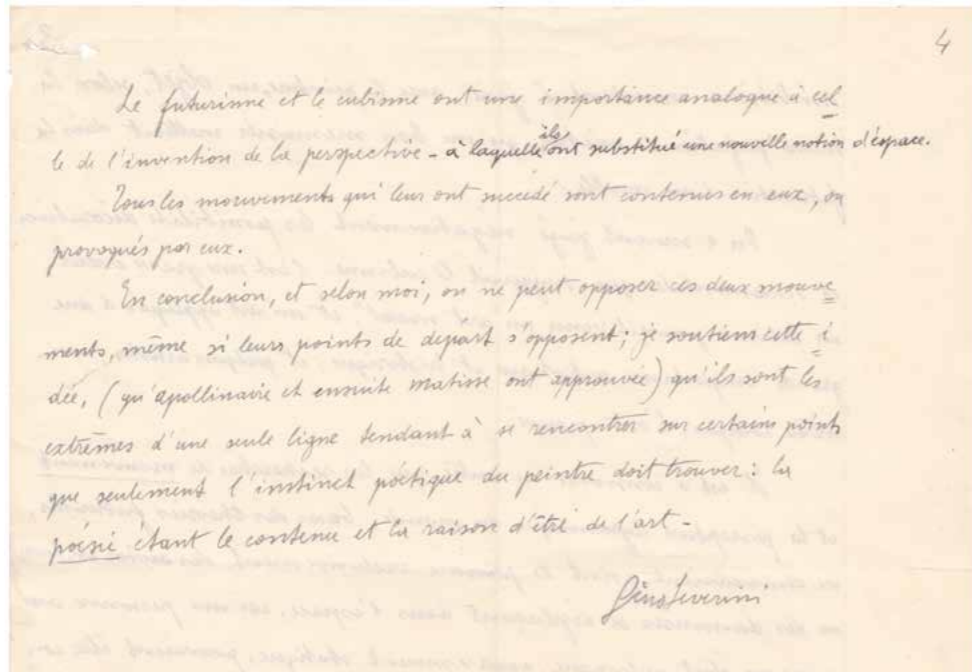 4
Le futurisme et le cubisme ont une importance analogue à cel
le de l'invention de la perspective - à laquelle ils ont substitué une nouvelle notion d'éspace.
Tous les mouvements qui leur ont succédé sont contenus en eux, ou
provoqués par eux.
En conclusion, et selon moi, on ne peut opposer ces deux mouve
ments, même si leurs points de départ s'opposent; je soutiens cette i
dée, (qu'apollinaire et ensuite matisse ont approuvée) qu'ils sont les
extrêmes d'une seule ligne tendant à se rencontrer sur certains points
que seulement l'instinct poétique du peintre doit trouver: la
poésie étant le contenu et la raison d'être de l'art -
Gino Severini